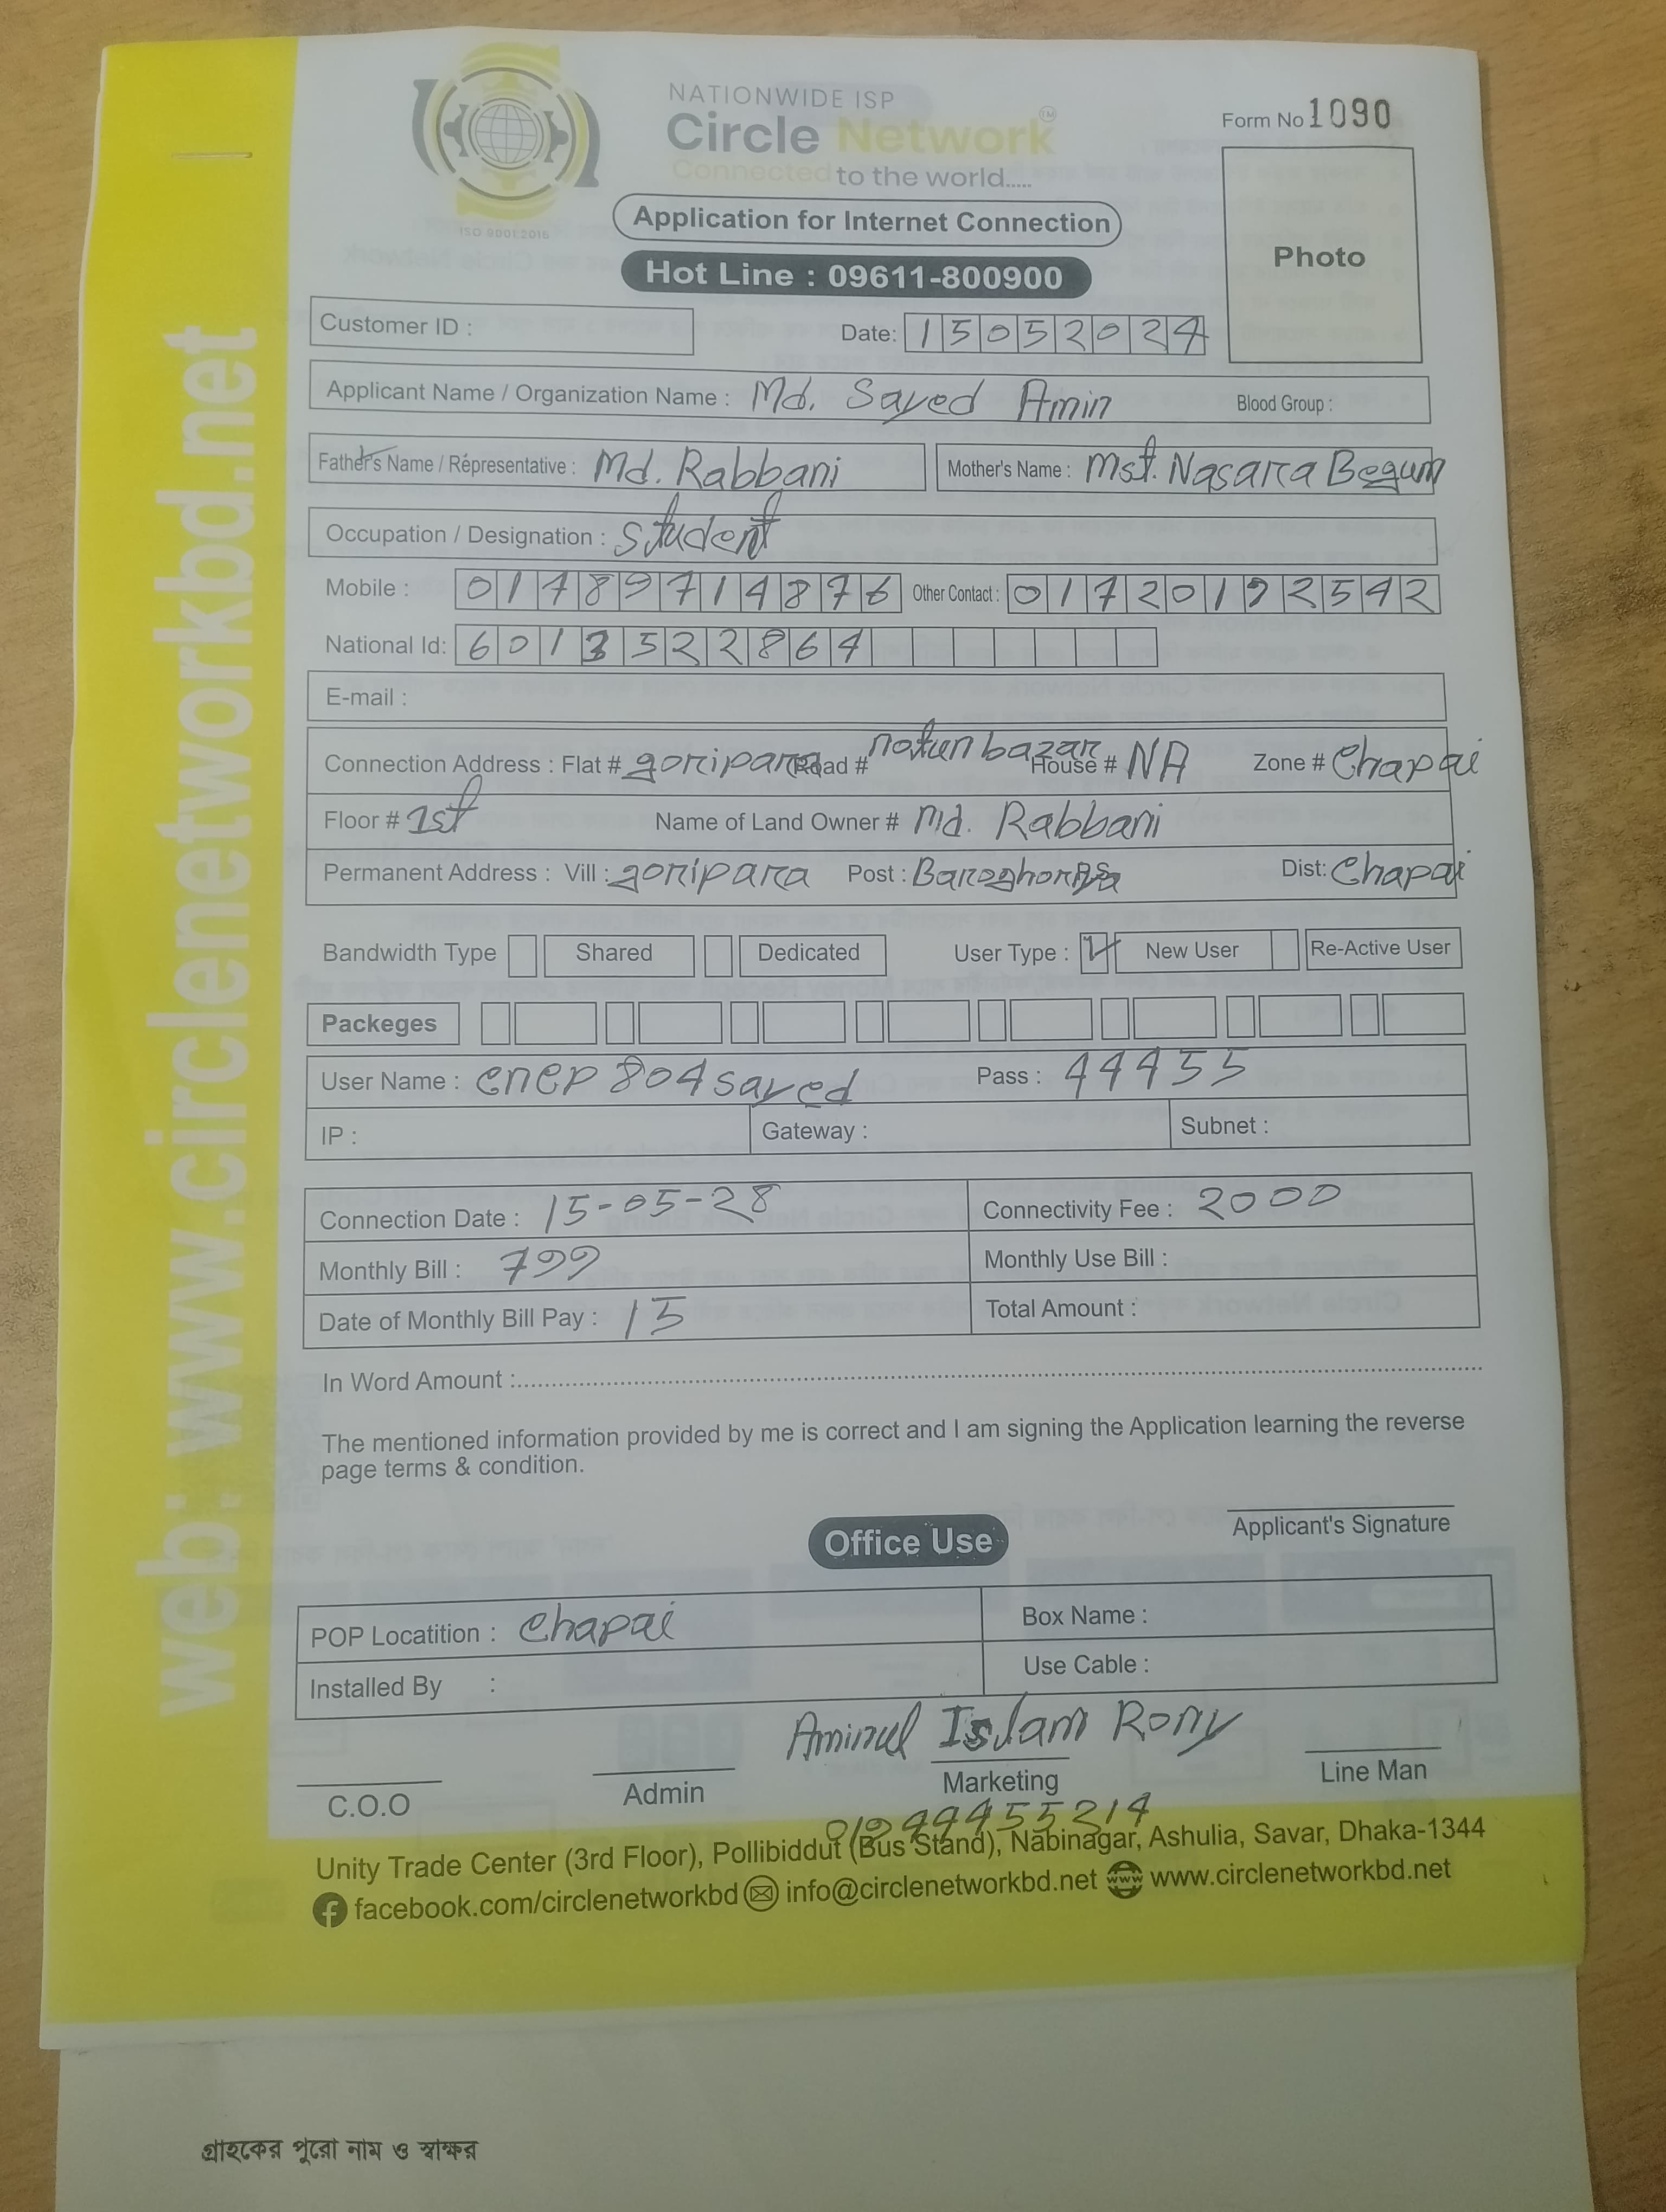 NATIONWIDE ISP
Circle Network™
Connected to the world.....
ISO 9001:2015
Form No 1090
Application for Internet Connection
Hot Line : 09611-800900
Photo
Customer ID :
Date: 15052024
Applicant Name / Organization Name : Md. Sayed Amin Blood Group :
Father's Name / Representative : Md. Rabbani Mother's Name : Mst. Nasara Begum
Occupation / Designation : student
Mobile : 01789714876 Other Contact : 01720192542
National Id: 6013522864
E-mail :
Connection Address : Flat # goripara Road # notun bazar House # NA Zone # Chapai
Floor # 1st Name of Land Owner # Md. Rabbani
Permanent Address : Vill : goripara Post : P.S Dist: Chapai
Bandwidth Type Shared Dedicated User Type : New User Re-Active User
Packeges
User Name : cncp804sayed Pass : 44455
IP : Gateway : Subnet :
Connection Date : 15-05-28 Connectivity Fee : 2000
Monthly Bill : 799 Monthly Use Bill :
Date of Monthly Bill Pay : 15 Total Amount :
In Word Amount :
The mentioned information provided by me is correct and I am signing the Application learning the reverse
page terms & condition.
Applicant's Signature
Office Use
POP Locatition : Chapai Box Name :
Installed By : Use Cable :
Aminul Islam Rony
C.O.O Admin Marketing Line Man
Unity Trade Center (3rd Floor), Pollibiddut (Bus Stand), Nabinagar, Ashulia, Savar, Dhaka-1344
facebook.com/circlenetworkbd info@circlenetworkbd.net www.circlenetworkbd.net
web: www.circlenetworkbd.net
গ্রাহকের পুরো নাম ও স্বাক্ষর